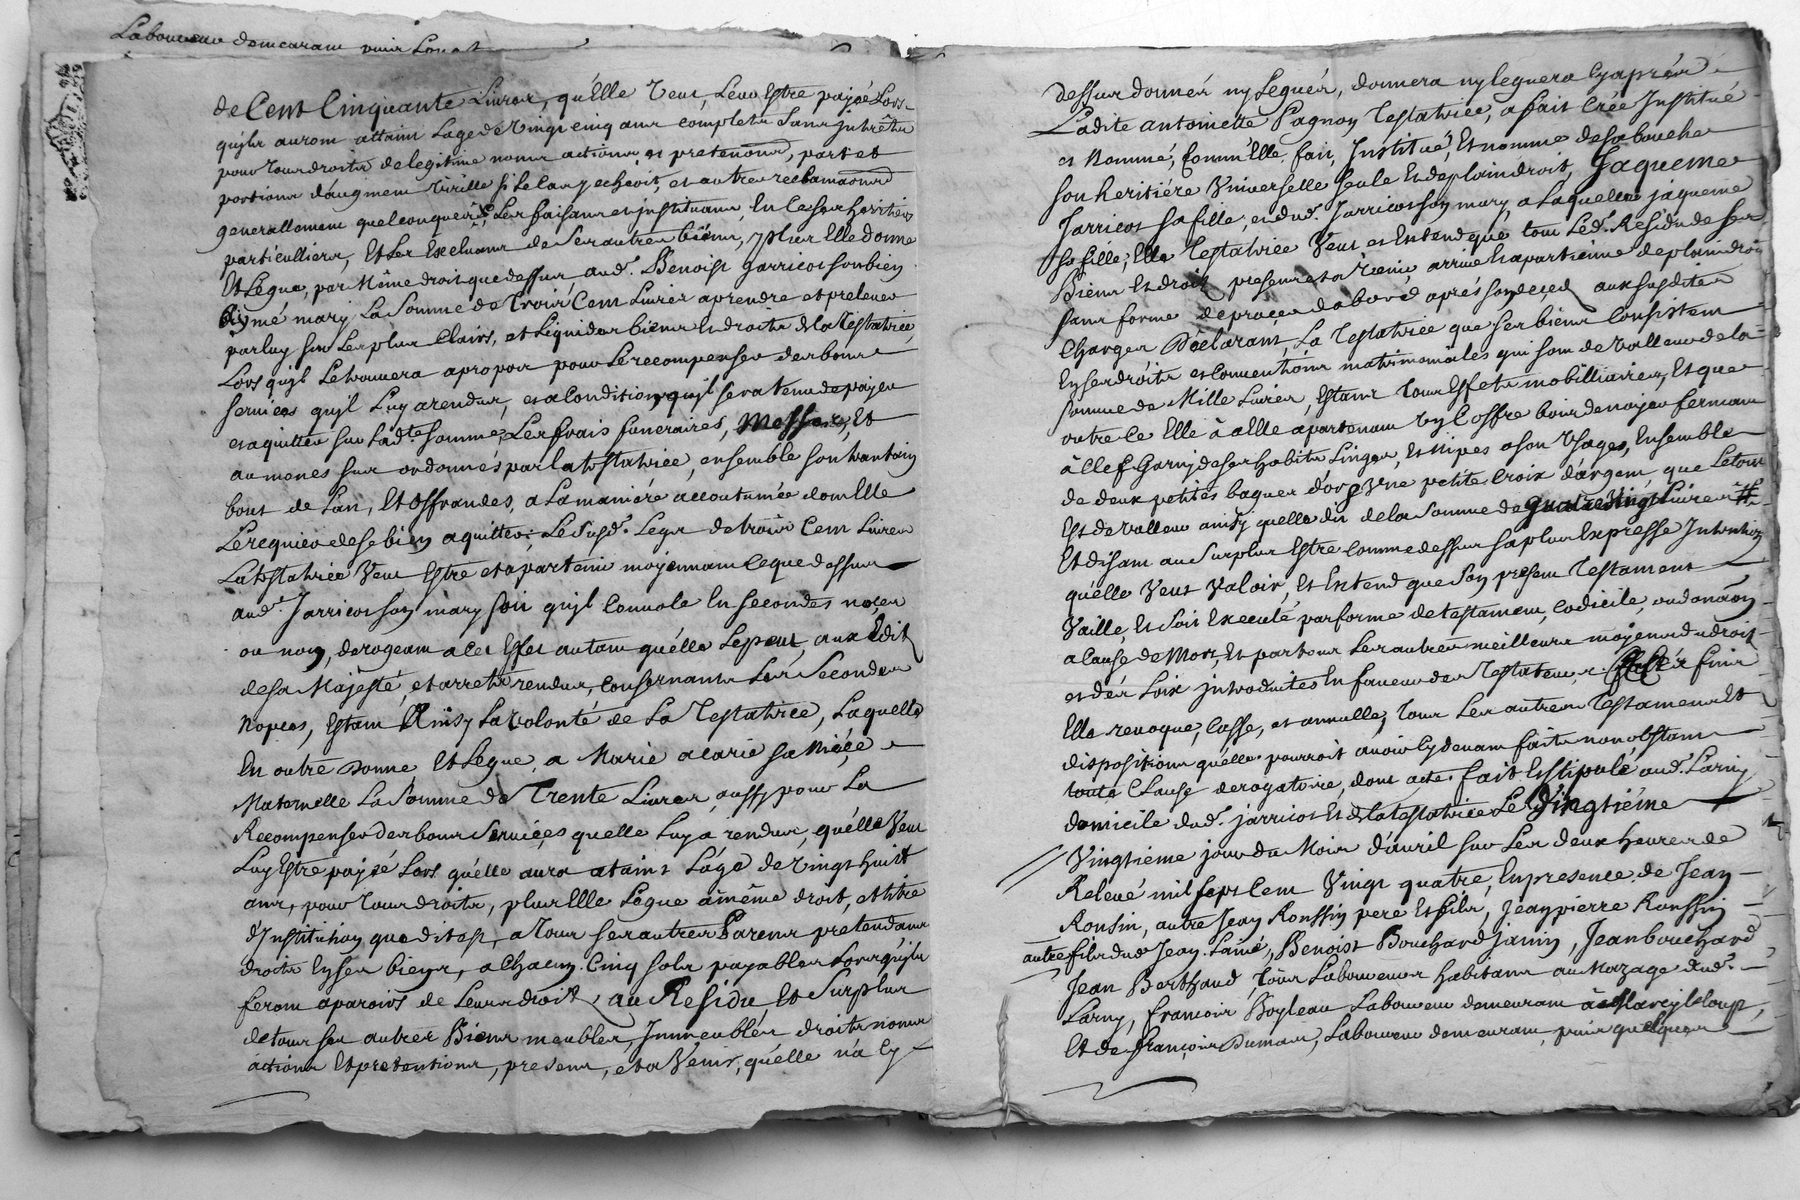 Laboureur demeurant
de Cent Cinquante Livres, qu'Elle veut, Leur Estre payée Lors
quils auront attaint Lage de vingt cinq ans complets sans Intrêts
pour tous droits de legitime noms actions et pretentions, part et
portions d'augment virille sy le cas y echeoit, et autres reclamaons
generallement quelconques, Les faisant et instituant, En Ce ses heritiers
particulliers, Et Les Excluant de Ses autres biens, plus Elle donne
Et Legue, par Même droit que dessus, aud. Benoist Jarricot son bien
Aymé mary La Somme de Trois Cent Livres a prendre et prelever
par luy sur Les plus Clairs, et Liquides biens Et droits de la Testatrice
Lors qu'il Le trouvera a propos pour Le recompenser des bons
services qu'il Luy a rendus, et a Condition, qu'il sera tenu de payer
et aquitter sur Ladte Somme, Les frais funeraires, Messes, Et
aumones par ordonnés par la testatrice, ensemble son trantain
bout de Lan, Et Offrandes, a La manière accoutumée dont Elle
Le requier de se bien aquitter; Le Susd. Legs de trois Cent Livres
La testatrice Veut Estre et apartenir moyennant Ce que dessus
aud. Jarricot son mary soit qu'il Convole En secondes noces
ou non, derogeant a Cet Effet autant qu'elle Le peut, aux Edits
de sa Majesté, et arrets rendus, Consernants Les Secondes
Nopces, Estant Ainsy La volonté de La Testatrice, Laquelle
En outre Donne, Et Legue, a Marie acarie sa Niéce
Maternelle La Somme de Trente Livres, aussy pour La
Recompenser des bons Services quelle Luy a rendus, qu'elle Veut
Luy Estre payée Lors qu'elle aura ataint L'age de vingt huit
ans, pour tous droits, plus Elle Legue a même droit, et titre
d'Institution que dit est, a tous ses autres Parens pretendans
droits En ses biens, a Chacun Cinq sols payables Lors qu'ils
feront aparoirs de Leurs droits, au Residu Et Surplus
de tous ses autres Biens meubles, Immeubles droits noms
actions Et pretentions, presens, et a Venir, qu'elle n'a Cy
dessus donnés ny Legués, donnera ny leguera Cy aprés
Ladite antoinette Pagnon Testatrice, a fait Crée Institué
et Nommé, Comm'Elle, fait, Institué, Et nomme de sa bouche
son heritiére Universelle seule Et de plain droit, Jaqueme
Jarricot sa fille, et dud. Jarricot son mary, a Laquelle jaqueme
sa fille, Elle Testatrice Veut et Entend que tout Led. Residu de ses
Biens Et droits presens et a Venir, arrive Et apartienne de plain droit
sans forme de procès d'abord aprés son deced aux susdites
Charges Déclarant, La Testatrice que ses biens Consistent
En ses droits et Conventions matrimoniales qui sont de valleur de la
Somme de Mille Livres, Estant tous Effets mobilliaires, Et que
outre Ce Elle à a Elle apartenant un Coffre bois de noyer fermant
à Clef Garny de ses habits Linges, Et nipes a son Usages, Ensemble
de deux petites bagues d'or, & une petite Croix d'argent, que Le tout
Est de valleur ainsy quelle dit de la Somme de quatre Vingt Livres
Et disant au Surplus Estre Comme dessus sa plus Expresse Intention
qu'elle Veut Valoir, Et Entend que Son present Testament
Vaille, Et soit Executé par forme de testament, Codicile, ou donaôn
a Cause de Mort, Et par tous Les autres meilleurs moyens du droit
et des Loix introduites En faveur des Testateurs
Elle revoque, Casse, et annulle, tous Les autres Testaments Et
dispositions qu'elle pourroit avoir Cy devant faits nonobstant
toute Clause derogatoire, dont acte, fait Et stipulé aud. Larny
domicile dud. jarricot Et de la testatrice Le Vingtiéme
Vingtieme jour du Mois d'avril sur Les deux heures de
Relevé mil sept Cent Vingt quatre, En presence de Jean
Ronsin, autre Jean Ronssin pere Et fils, Jean pierre Ronssin
autre fils dud. Jean Lainé, Benoist Bouchard janin, Jean bouchard
Jean Berthaud, tous Laboureurs habitans au Mazage dud.
Larny, francois Boyleau Laboureur demeurant à Marcy le loup,
Et de françois Dumas, Laboureur demeurant, puis quelques